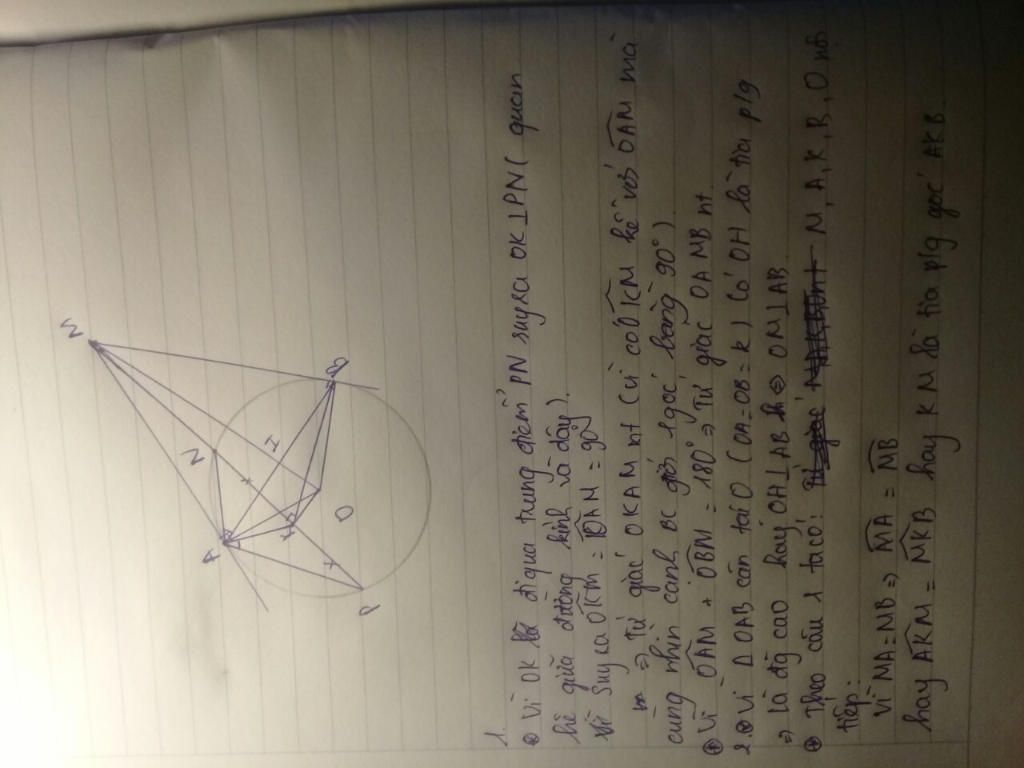 M
N
A
I
K
B
O
P
1.
Vì OK đi qua trung điểm PN suy ra OK ⊥ PN ( quan
hệ giữa đường kính và dây).
Suy ra OKM = OAM = 90°
⇒ Tứ giác OKAM nt ( vì có OKM kề với OAM mà
cùng nhìn cạnh BC dưới 1 góc bằng 90°)
Vì OAM + OBM = 180° ⇒ Tứ giác OAMB nt
2. Vì Δ OAB cân tại O ( OA = OB = R ) có OH là tia p/g
⇒ là đg cao hay OH ⊥ AB ⇔ OM ⊥ AB
Theo câu 1 ta có: M, A, K, B, O nội
tiếp.
Vì MA = MB ⇒ MA = MB
hay AKM = MKB hay KM là tia p/g góc AKB